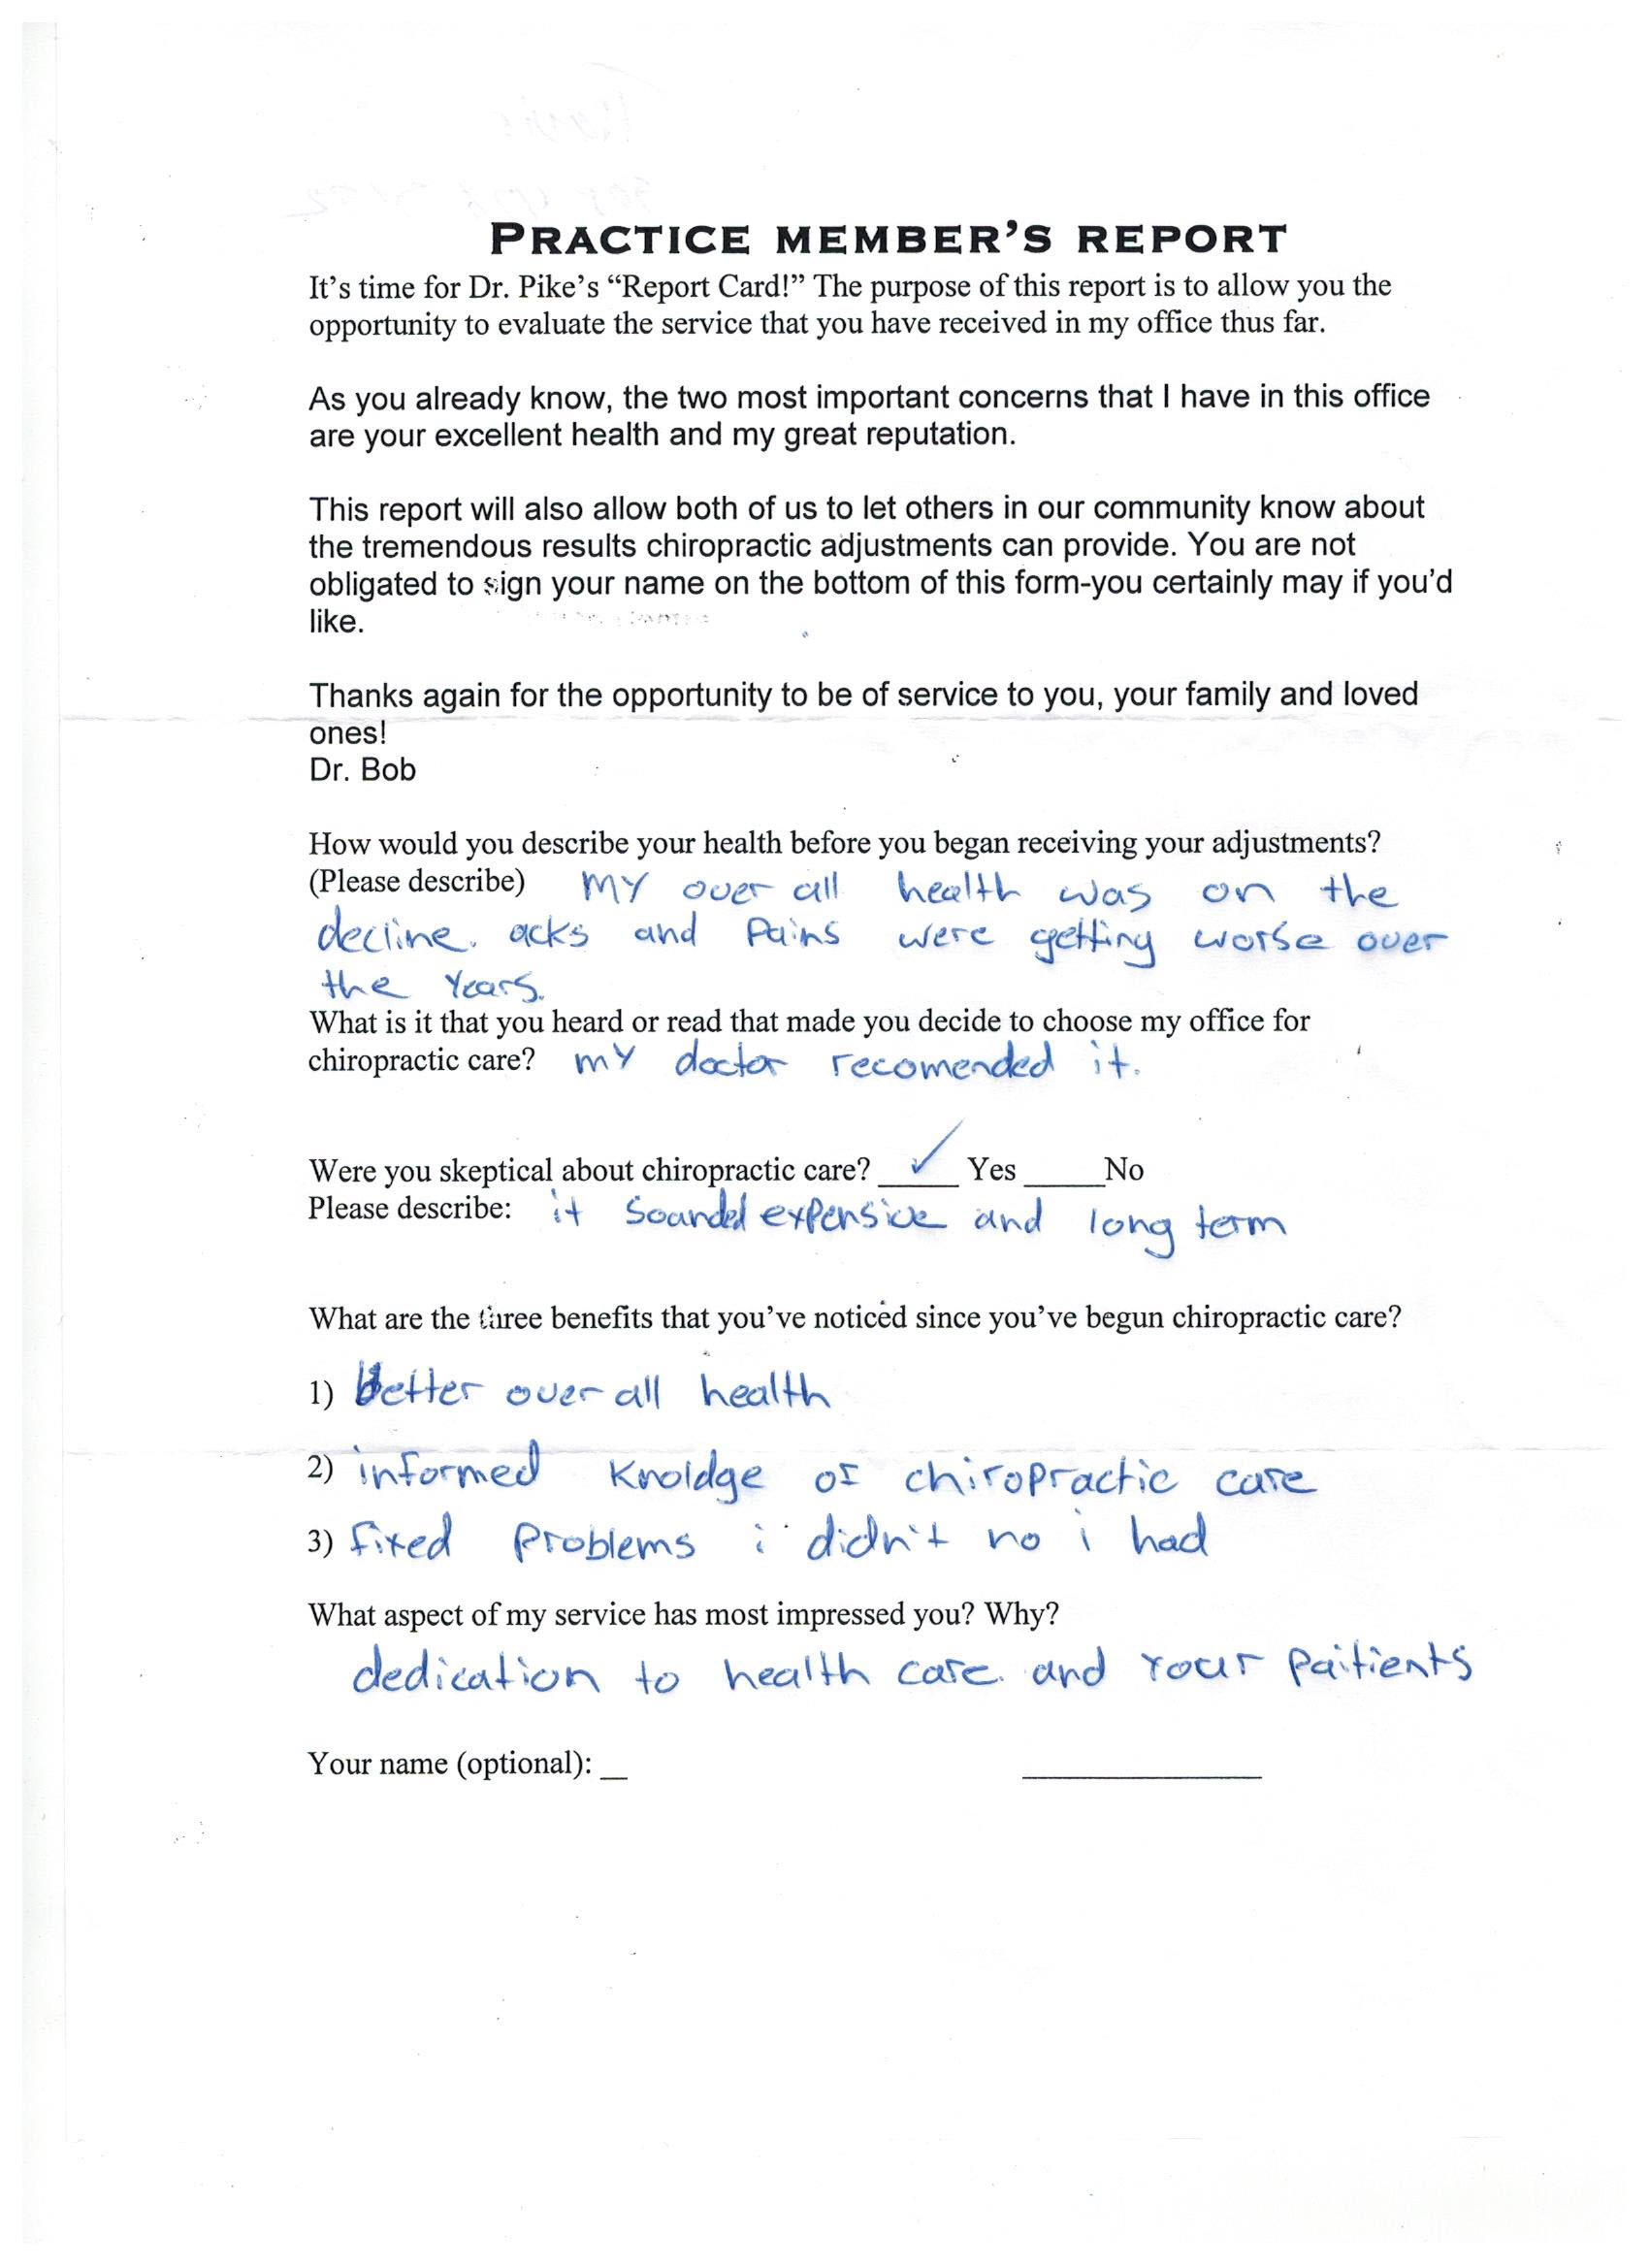 PRACTICE MEMBER'S REPORT
It's time for Dr. Pike's “Report Card!” The purpose of this report is to allow you the
opportunity to evaluate the service that you have received in my office thus far.
As you already know, the two most important concerns that I have in this office
are your excellent health and my great reputation.
This report will also allow both of us to let others in our community know about
the tremendous results chiropractic adjustments can provide. You are not
obligated to sign your name on the bottom of this form-you certainly may if you'd
like.
Thanks again for the opportunity to be of service to you, your family and loved
ones!
Dr. Bob
How would you describe your health before you began receiving your adjustments?
(Please describe) MY over all health was on the
decline. acks and Pains were getting worse over
the Years.
What is it that you heard or read that made you decide to choose my office for
chiropractic care? mY doctor recomended it.
Were you skeptical about chiropractic care? ✓ Yes No
Please describe: it Sounded expensive and long term
What are the three benefits that you've noticed since you've begun chiropractic care?
1) better over all health
2) informed Knoldge of chiropractic care
3) fixed Problems i didn't no i had
What aspect of my service has most impressed you? Why?
dedication to health care and Your Paitients
Your name (optional):